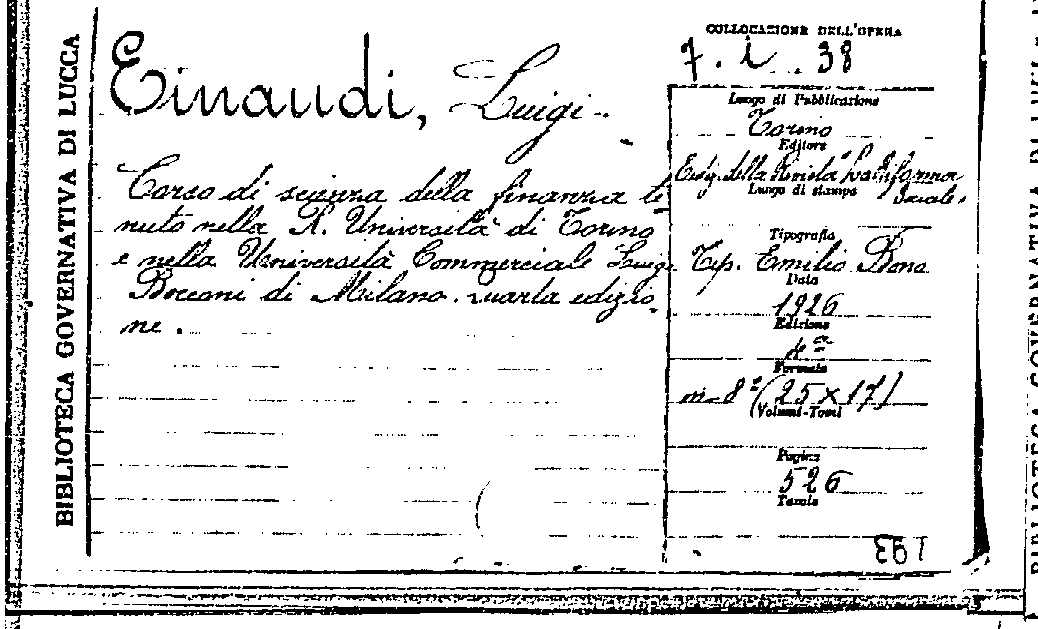 BIBLIOTECA GOVERNATIVA DI LUCCA
Einaudi, Luigi.
Corso di scienza della finanza te
nuto nella R. Università di Torino
e nella Università Commerciale Luigi
Bocconi di Milano. quarta edizio
ne.
COLLOCAZIONE DELL'OPERA
7. i. 38
Luogo di Pubblicazione
Torino
Editore
Ediz. della Rivista "La Riforma
Sociale"
Luogo di stampa
Tipografia
Tip. Emilio Bono
Data
1926
Edizione
4ª
Formato
in-8° (25 x 17)
(Volumi-Tomi
Pagine
526
Tavole